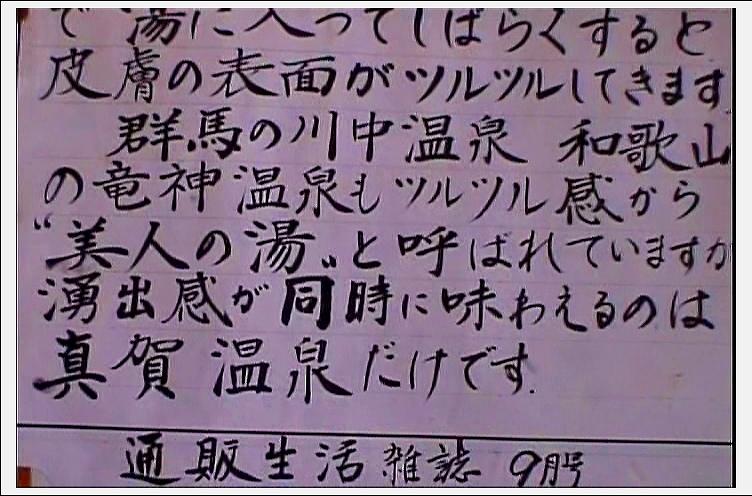 で湯に入ってしばらくすると
皮膚の表面がツルツルしてきます
群馬の川中温泉 和歌山
の竜神温泉もツルツル感から
“美人の湯„と呼ばれていますが
湧出感が同時に味わえるのは
真賀温泉だけです.
通販生活 雑誌 9月号